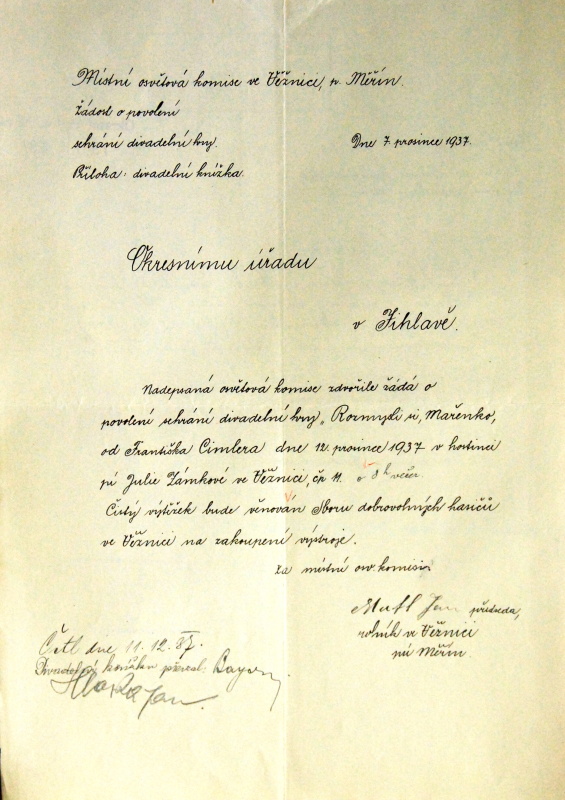 Místní osvětová komise ve Věžnice, p. Měřín.
Žádost o povolení
sehrání divadelní hry.
Dne 7. prosince 1937.
Příloha: divadelní knížka.
Okresnímu úřadu
v Jihlavě.
Nadepsaná osvětová komise zdvořile žádá o
povolení sehrání divadelní hry „Rozmysli si, Mařenko,
od Františka Cimlera dne 12. prosince 1937 v hostinci
pí Julie Zámkové ve Věžnici, čp. 11. o 8 h večer.
Čistý výtěžek bude věnován Sboru dobrovolných hasičů
ve Věžnici na zakoupení výstroje.
Za místní osv. komisi:
Jan předseda,
rolník ve Věžnici
pú Měřín.
Četl dne 11.12.37.
Divadelní knížku
Jan.